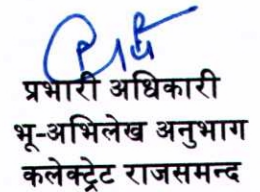 प्रभारी अधिकारी
भू-अभिलेख अनुभाग
कलेक्ट्रेट राजसमन्द